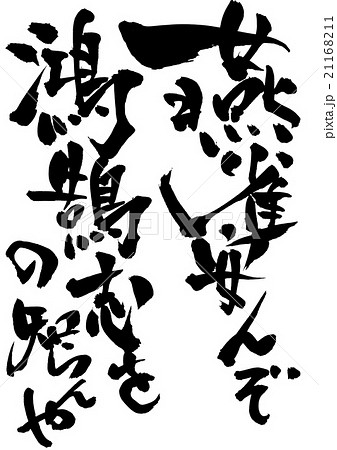 燕雀安んぞ
鴻鵠の志を知らんや
PIXTA
pixta.jp - 21168211